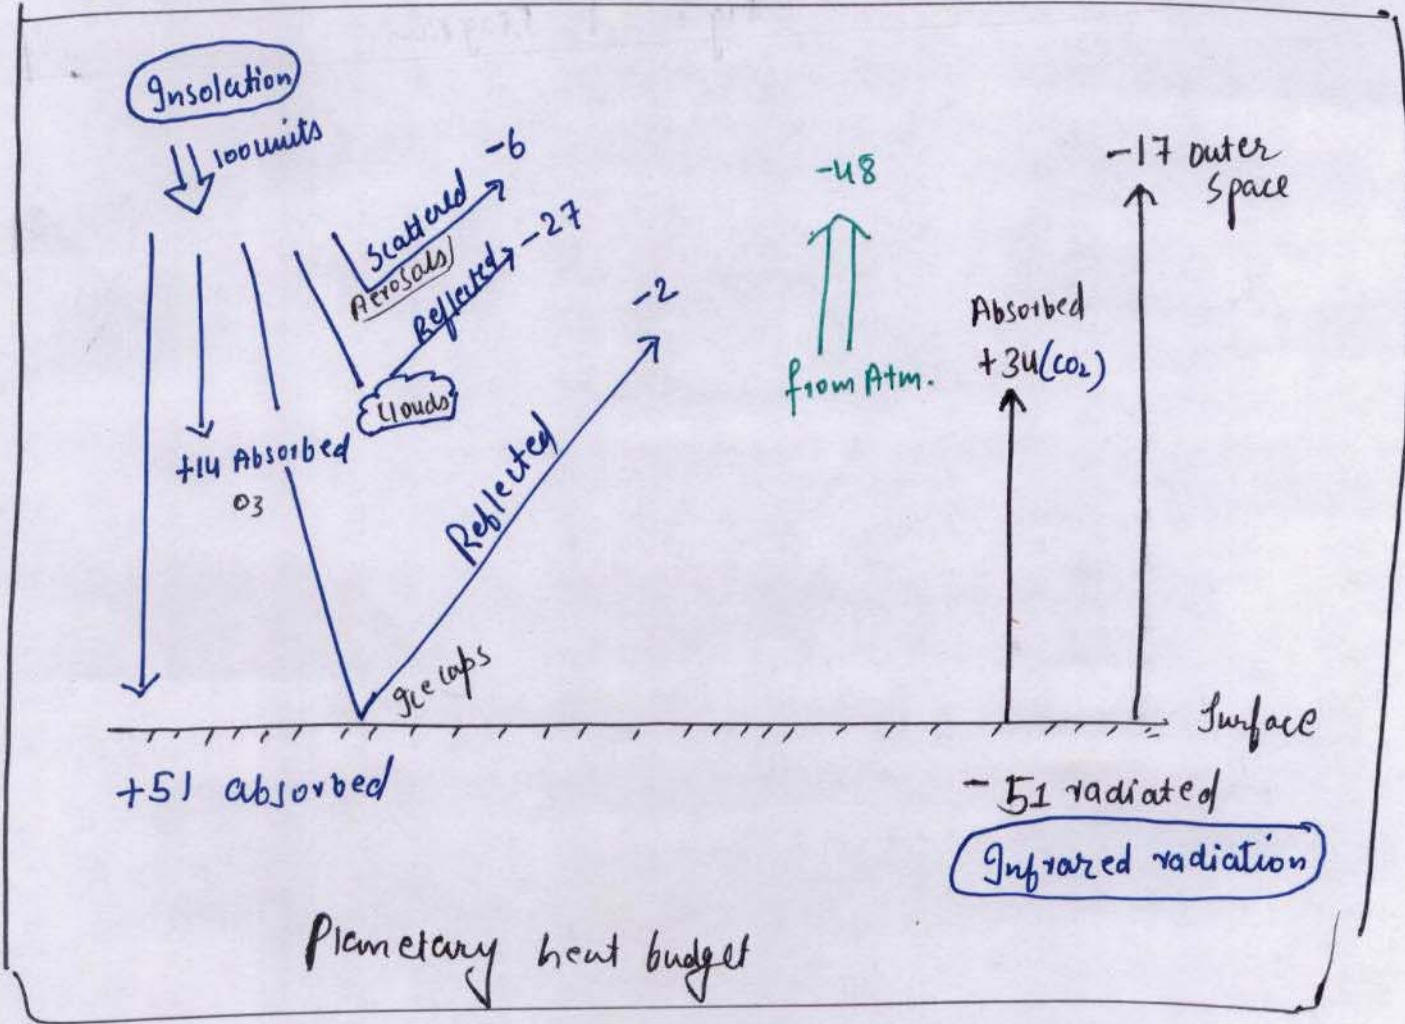 Insolation
100 units
Scattered -6
Aerosals
Reflected -27
Clouds
+14 Absorbed
O3
Reflected
-2
Ice caps
-48
from Atm.
Absorbed
+34 (CO2)
-17 outer
space
Surface
+51 absorbed
- 51 radiated
Infrared radiation
Planetary heat budget